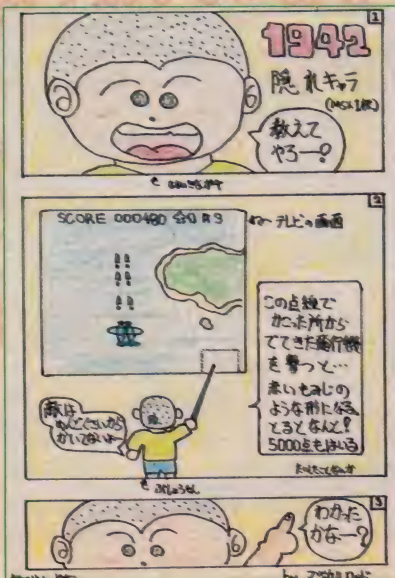 1
1942
隠れキャラ
(MSX1版)
教えて
やろー?
2
SCORE 000480 合Q #3
テレビの画面
この点線で
かこった所から
でてきた飛行機
を撃つと…
赤いもみじの
ような形になる。
とるとなんと?
5000点もはいる
敵は
めんどくさいから
かいてないよー
ぶしょうもん
3
わかった
かなー?
by